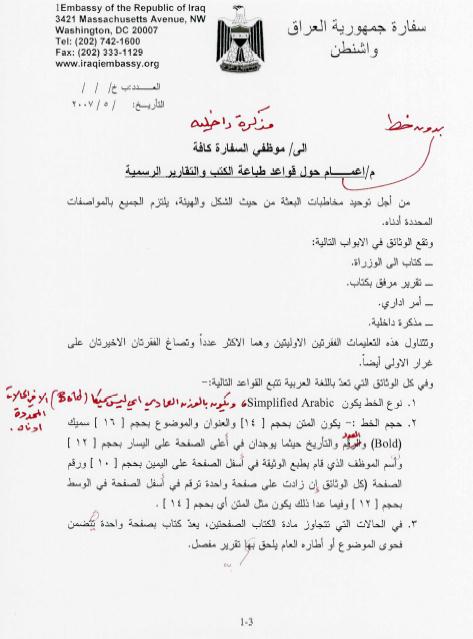 Embassy of the Republic of Iraq
3421 Massachusetts Avenue, NW
Washington, DC 20007
Tel: (202) 742-1600
Fax: (202) 333-1129
www.iraqiembassy.org
سفارة جمهورية العراق
واشنطن
العـــدد:ب خ/ / /
التأريخ: / ٥/ ٢٠٠٧
مذكرة داخلية
بدون خط
الى/ موظفي السفارة كافة
م/اعمـــــام حول قواعد طباعة الكتب والتقارير الرسمية
من أجل توحيد مخاطبات البعثة من حيث الشكل والهيئة، يلتزم الجميع بالمواصفات
المحددة أدناه.
وتقع الوثائق في الابواب التالية:
ــ كتاب الى الوزراة.
ــ تقرير مرفق بكتاب.
ــ أمر اداري.
ــ مذكرة داخلية.
وتتناول هذه التعليمات الفقرتين الاوليتين وهما الاكثر عدداً وتصاغ الفقرتان الاخيرتان على
غرار الاولى أيضاً.
وفي كل الوثائق التي تعدّ باللغة العربية تتبع القواعد التالية:-
١. نوع الخط يكون Simplified Arabic، ويكون بالوزن العادي اي ليس سميكا (Bold) الا في الحالات
المحددة
ادناه.
٢. حجم الخط :- يكون المتن بحجم [ ١٤ ] والعنوان والموضوع بحجم [ ١٦ ] سميك
(Bold) والرقم العدد والتأريخ حيثما يوجدان في أعلى الصفحة على اليسار بحجم [ ١٢ ]
وأسم الموظف الذي قام بطبع الوثيقة في أسفل الصفحة على اليمين بحجم [ ١٠ ] ورقم
الصفحة (كل الوثائق إن زادت على صفحة واحدة ترقم في أسفل الصفحة في الوسط
بحجم [ ١٢ ] وفيما عدا ذلك يكون مثل المتن أي بحجم [ ١٤ ] .
٣. في الحالات التي تتجاوز مادة الكتاب الصفحتين، يعدّ كتاب بصفحة واحدة يتضمن
فحوى الموضوع أو أطاره العام يلحق بها تقرير مفصل.
1-3